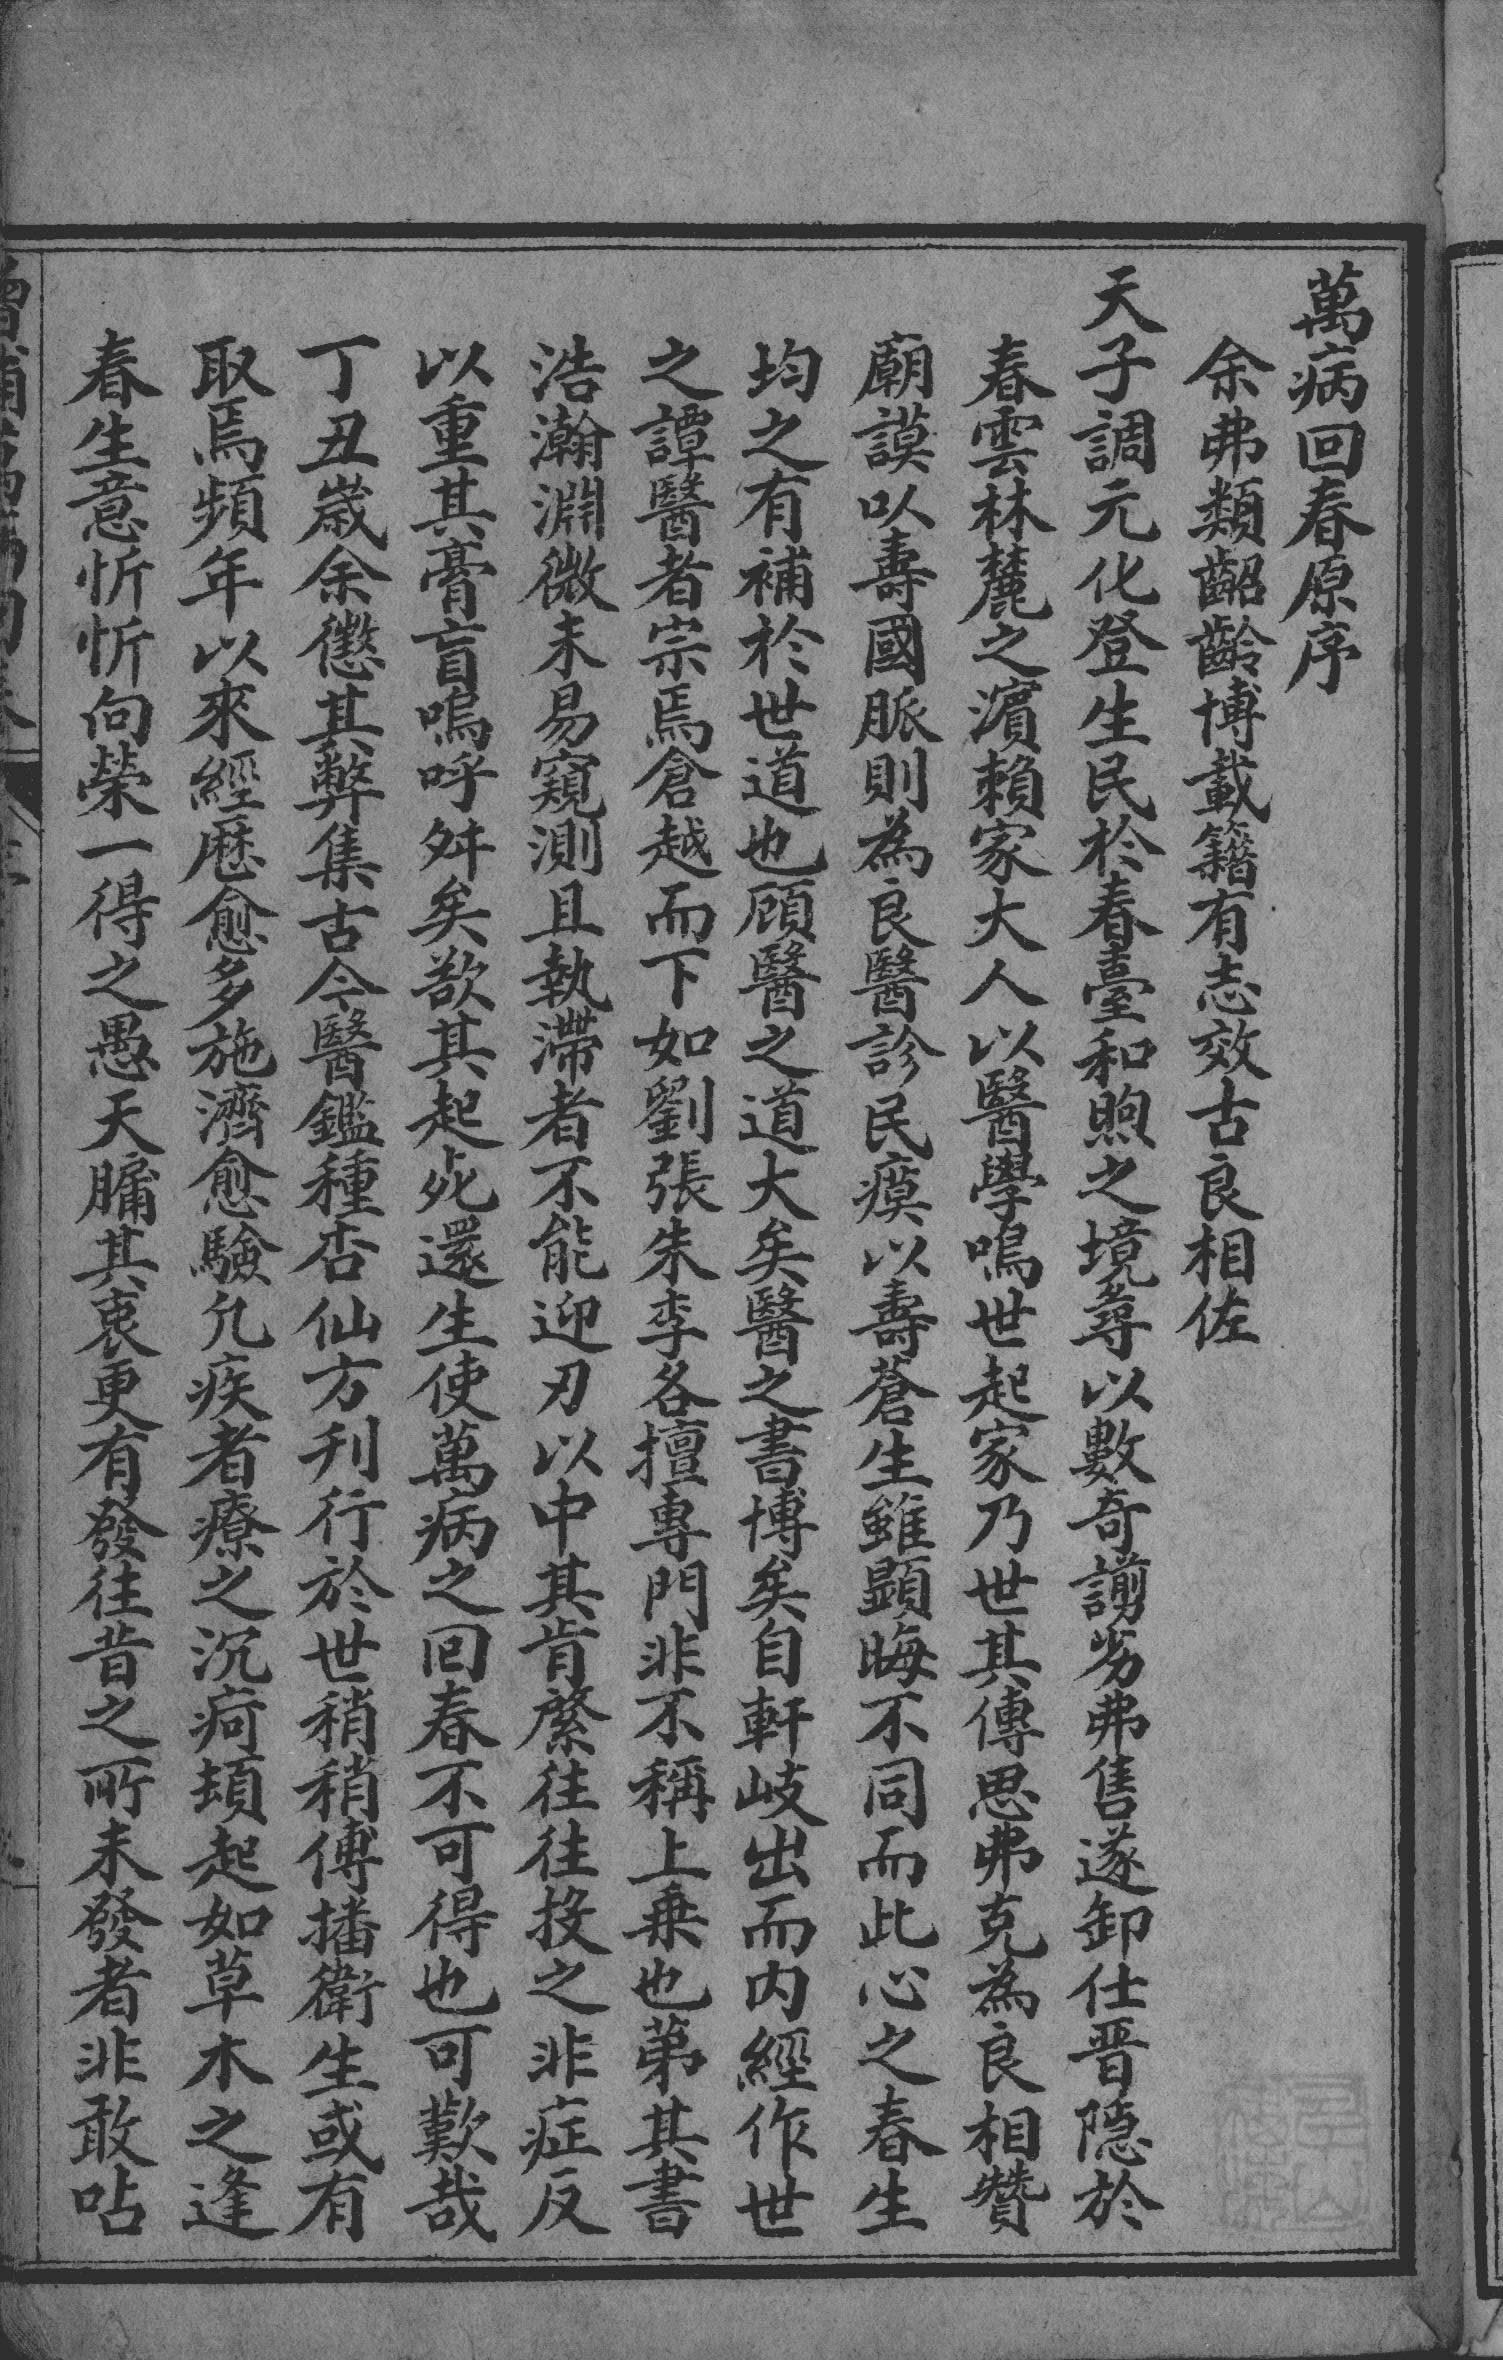 萬病回春原序
余弗類齠齡博載籍有志效古良相佐
天子調元化登生民於春臺和煦之境尋以數奇謭劣弗售遂卸仕晋隱於
春雲林麓之濵賴家大人以醫學鳴世起家乃世其傳思弗克為良相贊
廟謨以壽國脈則為良醫診民瘼以壽蒼生雖顕晦不同而此心之春生
均之有補於世道也顧醫之道大矣醫之書博矣自軒岐出而内經作世
之譚醫者宗焉倉越而下如劉張朱李各擅專門非不稱上乗也苐其書
浩瀚淵微未易窺測且執滯者不能迎刃以中其肯綮往往投之非症反
以重其膏盲嗚呼舛矣欲其起死還生使萬病之回春不可得也可歎哉
丁丑歲余懲其弊集古今醫鑑種杏仙方刋行於世稍稍傅播衛生或有
取焉頻年以來經歴愈多施濟愈驗凢疾者療之沉疴頓起如草木之逢
春生意忻忻向榮一得之愚天牖其衷更有發往昔之所未發者非敢呫